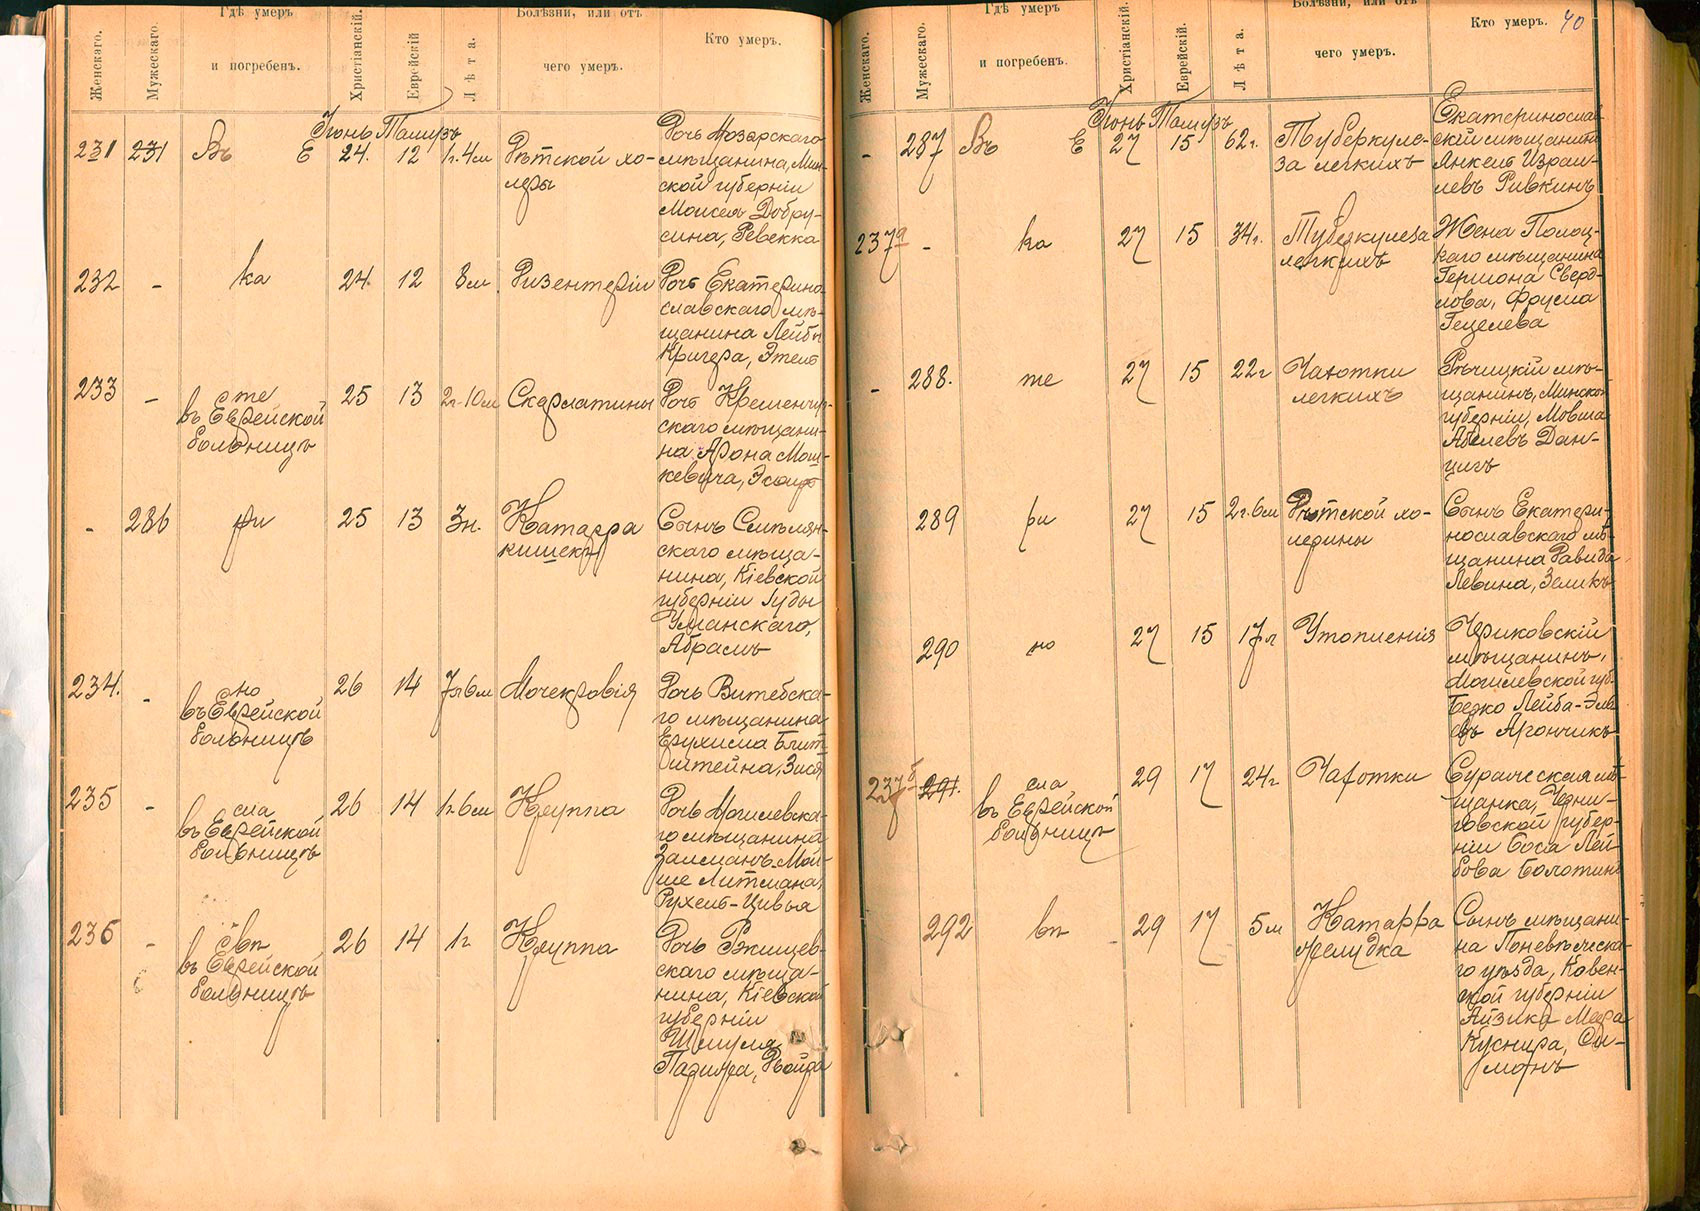 Женскаго.
Мужескаго.
Гдѣ умеръ
и погребенъ.
Христіанскій.
Еврейскій
Лѣта.
Болѣзни, или отъ
чего умеръ.
Кто умеръ.
Іюнь Тамузъ
231 231 Въ Е 24. 12 1г. 4м Дѣтской хо-
леры
Дочь Мозарскаго
мѣщанина, Мин-
ской губерніи
Моисея Добру-
сина, Ревекка
232 - ка 24. 12 8м Дизентеріи
Дочь Екатерино
славскаго мѣ-
щанина Лейбы
Кригера, Этель
233 - те 25 13 2г-10м Скарлатины
въ Еврейской
больницѣ
Дочь Кременчуг-
скаго мѣщани-
на Арона Мош-
кевича,
- 286 ри 25 13 3н. Катарра
кишекъ
Сынъ Смѣлян-
скаго мѣща-
нина, Кіевской
губерніи Іуды
Уманскаго,
Абрамъ
234. - но 26 14 7л 6м Мочекровія
въ Еврейской
больницѣ
Дочь Витебска-
го мѣщанина
Ерухима Блит
штейна, Зися
235 - сла 26 14 1г. 6м Круппа
въ Еврейской
больницѣ
Дочь Могилевска-
го мѣщанина
Залманъ-Мой-
ше Литмана,
Рухель-Цивья
236 - вп 26 14 1г Круппа
въ Еврейской
больницѣ
Дочь Ржищев-
скаго мѣща-
нина, Кіевской
губерніи
Шмуля
Женскаго.
Мужескаго.
Гдѣ умеръ
и погребенъ.
Христіанскій.
Еврейскій.
Лѣта.
Болѣзни, или отъ
чего умеръ.
Кто умеръ. 40
Іюнь Тамузъ
- 287 Въ Е 27 15 62г. Туберкуле-
за легкихъ
Екатериносла-
скій мѣщанинъ
Янкель Израи-
левъ Ривкинъ
237а - ка 27 15 34г. Туберкулеза
легкихъ
Жена Полоц-
каго мѣщанина
Гершона Сверд-
лова, Фрума
Гецелева
- 288. те 27 15 22г Чахотки
легкихъ
Рѣчицкій мѣ-
щанинъ, Минской
губерніи, Мовша
Абелевъ Дан-
цигъ
289 ри 27 15 2г. 6м Дѣтской хо-
лерины
Сынъ Екатери-
нославскаго мѣ-
щанина Давида
Левина, Зеликъ
290 но 27 15 17л Утопленія
Чериковскій
мѣщанинъ,
Могилевской губ.
Берко Лейба-Эль
въ Арончикъ
237б 291. сла 29 17 24г Чахотки
въ Еврейской
больницѣ
Суражская мѣ-
щанка, Черни-
говской губер-
ніи Бося Лей-
бова Болотин
292 вп 29 17 5м Катарра
желудка
Сынъ мѣщани-
на Поневѣжска-
го уѣзда, Ковен-
ской губерніи
Айзика Меера
Куснира, Си-
монъ